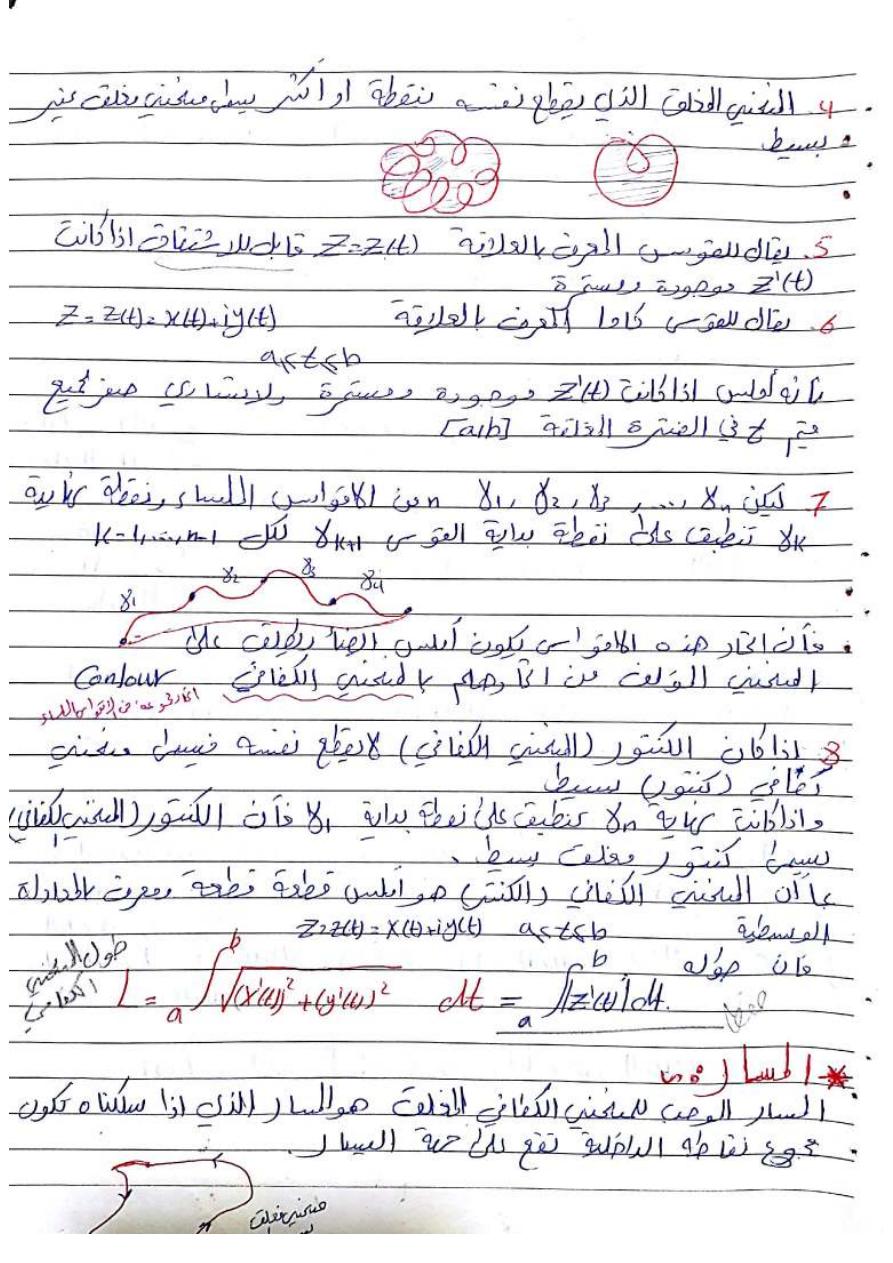 4. المنحني المغلق الذي يقطع نفسه بنقطة او اكثر يسمى منحني مغلق غير
بسيط
5. يقال للقوس المعرف بالعلاقة Z=Z(t) قابل للاشتقاق اذا كانت
Z'(t) موجودة ومستمرة
6. يقال للقوس المعرف بالعلاقة Z = Z(t) = X(t)+iy(t)
a≤t≤b
بأنه أملس اذا كانت Z'(t) موجودة ومستمرة ولا يساوي صفر لجميع
قيم t في الفترة المغلقة [a,b]
7 ليكن γ1, γ2, γ3, ..., γn n من الاقواس الملساء ونقطة نهاية
γk تنطبق على نقطة بداية القوس γk+1 لكل k=1,...,n-1
γ1 γ2 γ3 γ4
فأن اتحاد هذه الاقواس يكون أملس ايضاً ويطلق على
المنحني المؤلف من اتحادهم بالمنحني الكفافي Contour
اتحاد مجموعة من الاقواس الملساء
8 اذا كان الكنتور (المنحني الكفافي) لا يقطع نفسه فيسمى منحني
كفافي (كنتور) بسيط
واذا كانت نهاية γn تنطبق على نقطة بداية γ1 فأن الكنتور (المنحني الكفافي)
يسمى كنتور مغلق بسيط.
بما أن المنحني الكفافي (الكنتور) هو أملس قطعة قطعة ومعرف بالمعادلة
الوسطية Z=Z(t) = X(t)+iy(t) a≤t≤b
فان طوله
طول المنحني الكفافي L = a∫b √(x'(t))² + (y'(t))² dt = a∫b |z'(t)| dt.
حفظ
* المسار
المسار الموجب للمنحني الكفافي المغلق هو المسار الذي اذا سلكناه تكون
جميع نقاطه الداخلية تقع على جهة اليسار.
منحني مغلق